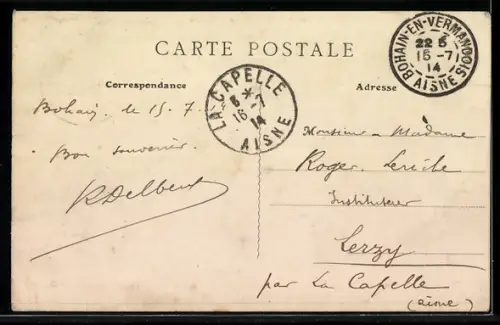 CARTE POSTALE
Correspondance
Adresse
BOHAIN-EN-VERMANDOIS
22 5
15 -7
14
AISNE
LA CAPELLE
6 *
16 -7
14
AISNE
Bohain, le 15. 7.
Bon souvenir.
RDelbert
Monsieur & Madame
Roger
Instituteur
Lerzy
par La Capelle
(aisne)